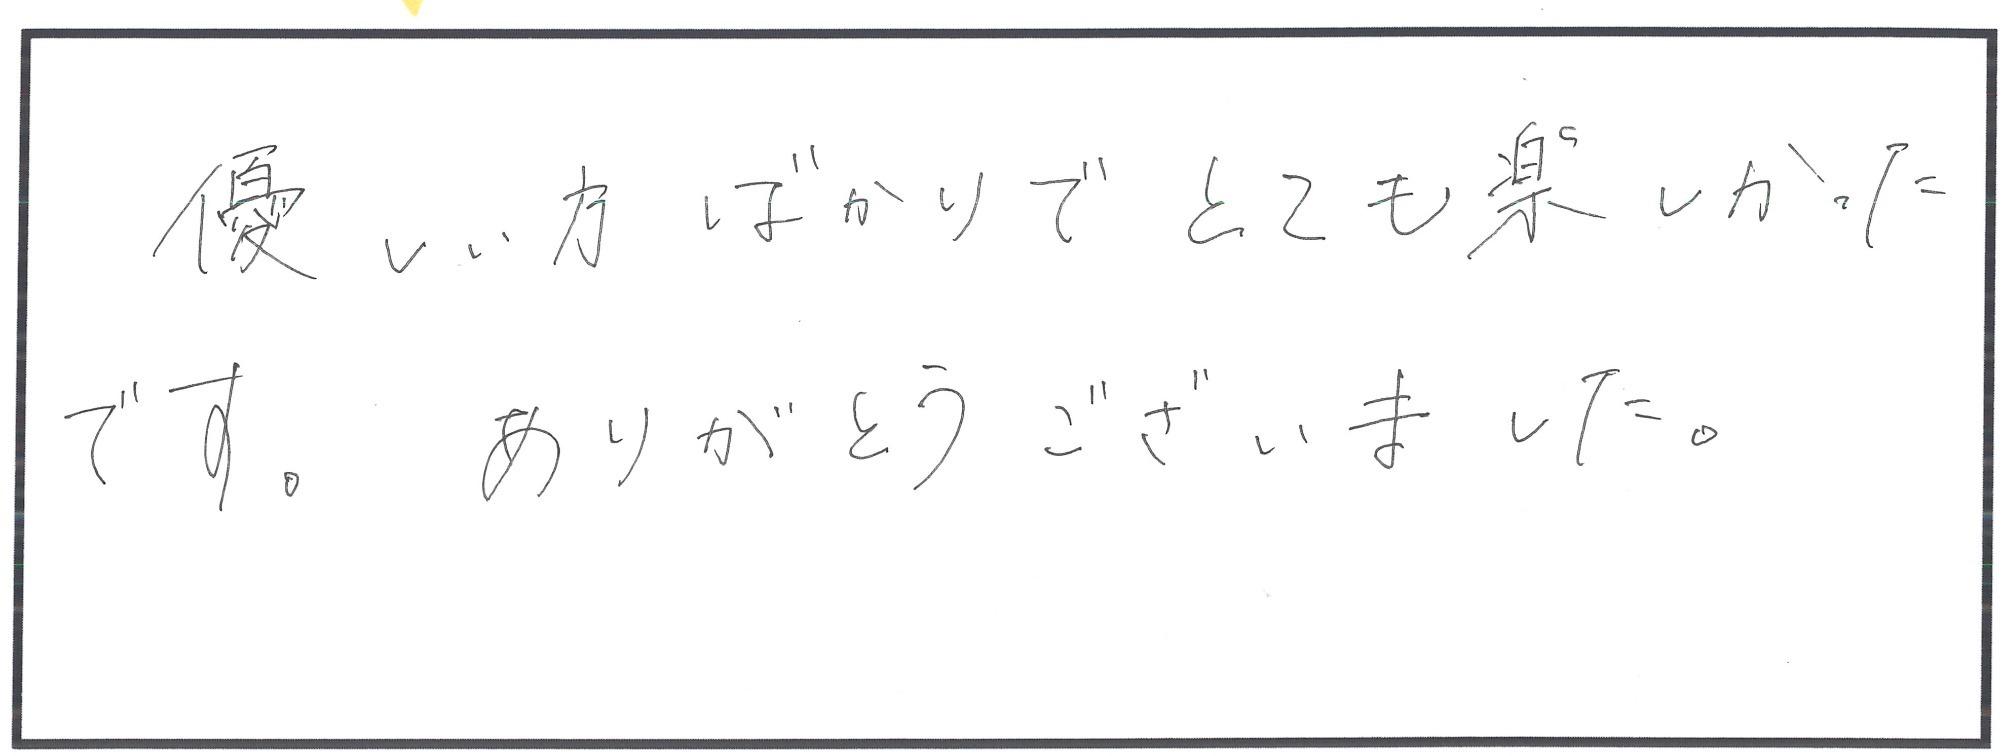 優しい方ばかりでとても楽しかった
です。ありがとうございました。